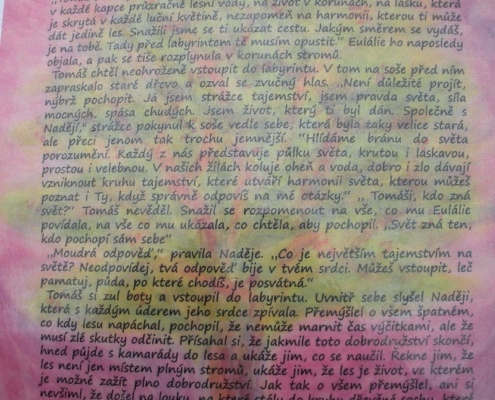 v každé kapce průzračné lesní vody, na život v korunách, na lásku, která
je skrytá v každé luční květině, nezapomeň na harmonii, kterou ti může
dát jedině les. Snažili jsme se ti ukázat cestu. Jakým směrem se vydáš,
je na tobě. Tady před labyrintem tě musím opustit." Eulálie ho naposledy
objala, a pak se tiše rozplynula v korunách stromů.
Tomáš chtěl neohroženě vstoupit do labyrintu. V tom na soše před ním
zapraskalo staré dřevo a ozval se zvučný hlas. „Není důležité projít,
nýbrž pochopit. Já jsem strážce tajemství, jsem pravda světa, síla
mocných, spása chudých. Jsem život, který ti byl dán. Společně s
Nadějí," strážce pokynul k soše vedle sebe, která byla taky velice stará,
ale přeci jenom tak trochu jemnější. "Hlídáme bránu do světa
porozumění. Každý z nás představuje půlku světa, krutou i laskavou,
prostou i velebnou. V našich žilách koluje oheň a voda, dobro i zlo dávají
vzniknout kruhu tajemství, které utváří harmonii světa, kterou můžeš
poznat i Ty, když správně odpovíš na mé otázky." ,, Tomáši, kdo zná
svět?" Tomáš nevěděl. Snažil se rozpomenout na vše, co mu Eulálie
povídala, na vše co mu ukázala, co chtěla, aby pochopil. „Svět zná ten,
kdo pochopí sám sebe"
„Moudrá odpověď," pravila Naděje. „Co je největším tajemstvím na
světě? Neodpovídej, tvá odpověď bije v tvém srdci. Můžeš vstoupit, leč
pamatuj, půda, po které chodíš, je posvátná."
Tomáš si zul boty a vstoupil do labyrintu. Uvnitř sebe slyšel Naději,
která s každým úderem jeho srdce zpívala. Přemýšlel o všem špatném,
co kdy lesu napáchal, pochopil, že nemůže marnit čas výčitkami, ale že
musí zlé skutky odčinit. Přísahal si, že jakmile toto dobrodružství skončí,
hned půjde s kamarády do lesa a ukáže jim, co se naučil. Řekne jim, že
les není jen místem plným stromů, ukáže jim, že les je život, ve kterém
je možné zažít plno dobrodružství. Jak tak o všem přemýšlel, ani si
nevšiml, že došel na louku, na které stály do kruhu dřevěné sochy, které